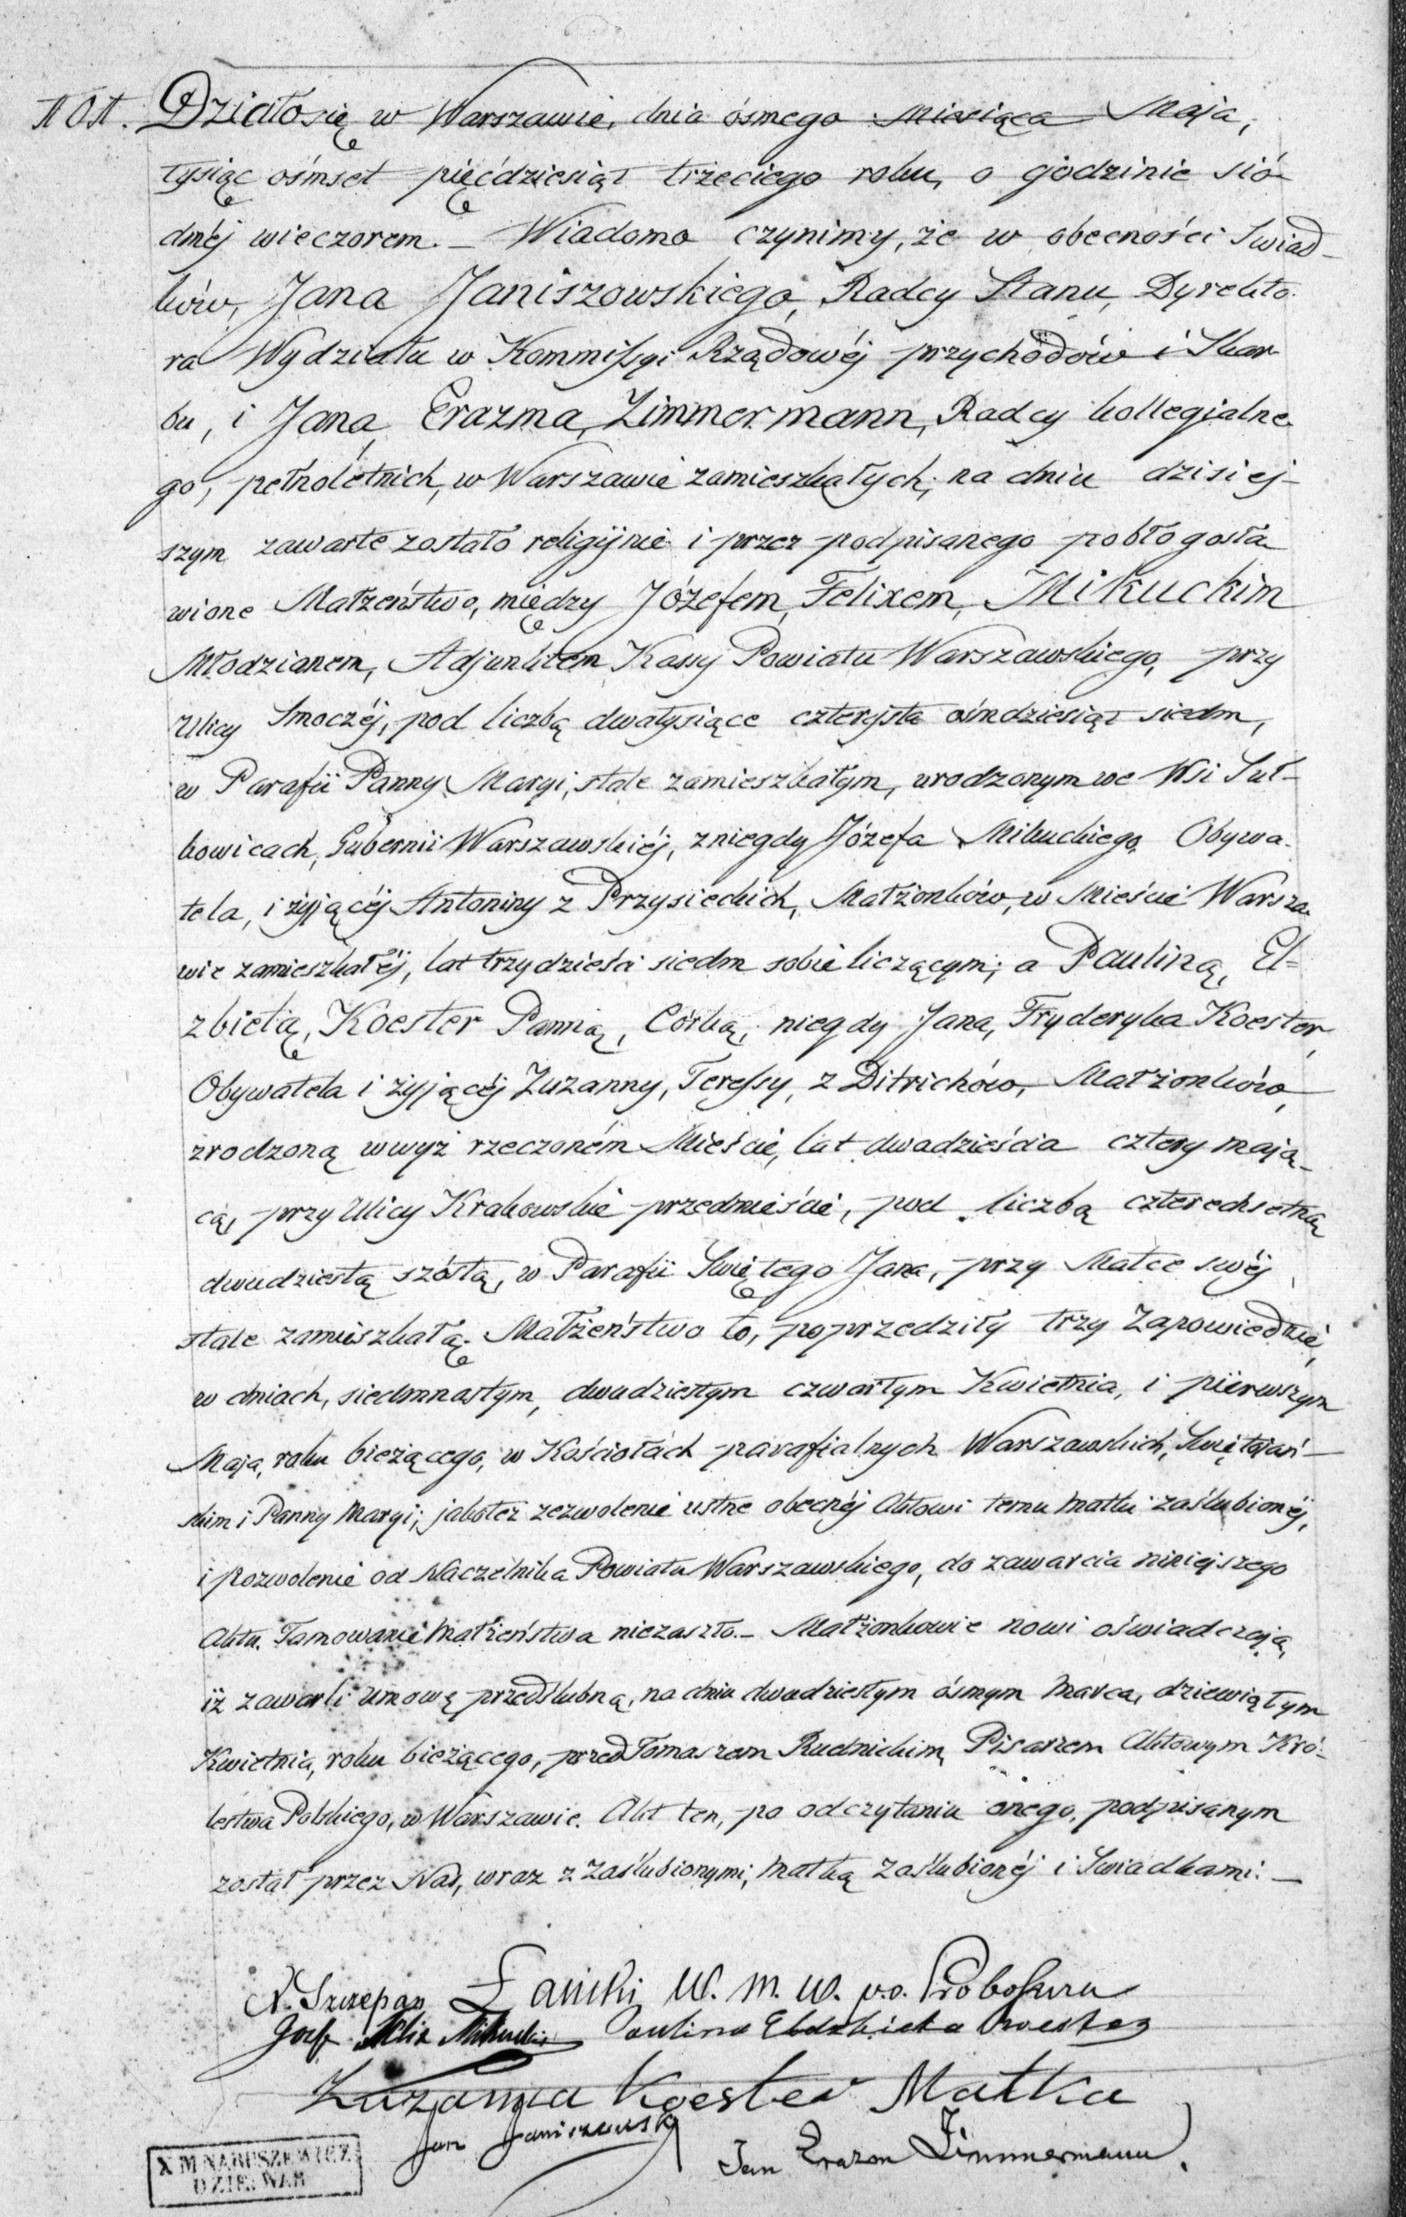 101. Działo się w Warszawie, dnia ósmego Miesiąca Maja,
tysiąc ośmset pięćdziesiąt trzeciego roku, o godzinie sió-
dméj wieczorem. – Wiadomo czynimy, że w obecności Swiad-
ków, Jana Janiszowskiego, Radcy Stanu, Dyrekto-
ra Wydziału w Kommissyi Rządowéj przychodów i Skar-
bu, i Jana, Erazma, Zimmermann, Radcy kollegialne-
go, pełnoletnich, w Warszawie zamieszkałych; na dniu dzisiej-
szym zawarte zostało religijnie i przez podpisanego pobłogosła-
wione Małżeństwo, między Józefem, Felixem, Mikuckim
Młodzianem, Adjunktem Kassy Powiatu Warszawskiego, przy
Ulicy Smoczéj, pod liczbą dwatysiące czterysta ośmdziesiąt siedm,
w Parafii Panny Maryi, stale zamieszkałym, urodzonym we Wsi Suł-
kowicach, Gubernii Warszawskiéj, z niegdy Józefa Mikuckiego Obywa-
tela, i żyjącéj Antoniny z Przysieckich, Małżonków, w Mieście Warsza-
wie zamieszkałéj, lat trzydzieści siedm sobie liczącym; a Pauliną, El-
zbietą, Koester Panną, Córką, niegdy Jana, Fryderyka Koester,
Obywatela i żyjącéj Zuzanny, Teressy, z Ditrichów, Małżonków,
zrodzoną w wyż rzeczoném Mieście, lat dwadzieścia cztery mają-
cą, przy Ulicy Krakowskie przedmieście, pod liczbą czterechsetną
dwudziestą szóstą, w Parafii Swiętego Jana, przy Matce swéj
stale zamieszkałą. Małżeństwo to, poprzedziły trzy Zapowiedzie,
w dniach, siedmnastym, dwudziestym czwartym Kwietnia, i pierwszym
Maja, roku bieżącego, w Kościołach parafialnych Warszawskich, Swiętojań-
skim i Panny Maryi; jakoteż zezwolenie ustne obecnéj Aktowi temu matki zaślubionéj,
i Pozwolenie od Naczelnika Powiatu Warszawskiego, do zawarcia niniejszego
Aktu. Tamowanie Małżeństwa niezaszło. – Małżonkowie nowi oświadczają,
iż zawarli umowę przedślubną, na dniu dwudziestym ósmym Marca, dziewiątym
Kwietnia, roku bieżącego, przed Tomaszem Rudnickim, Pisarzem Aktowym Kró-
lestwa Polskiego, w Warszawie. Akt ten, po odczytaniu onego, podpisanym
został przez Nas, wraz z Zaślubionymi, Matką Zaślubionéj i Swiadkami. –
X. Szczepan Łanicki W. M. W. p.o. Proboszcza
Józef Felix Mikucki Paulina Elżbieta Koester
Zuzanna Koester Matka
Jan Janiszewski Jan Erazm Zimmermann
X M NARUSZEWICZ
DZIE. WAR